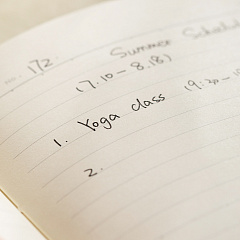 172.
Summer Schedul
(7.10 - 8.18)
1. Yoga class (9:30 - 1
2.